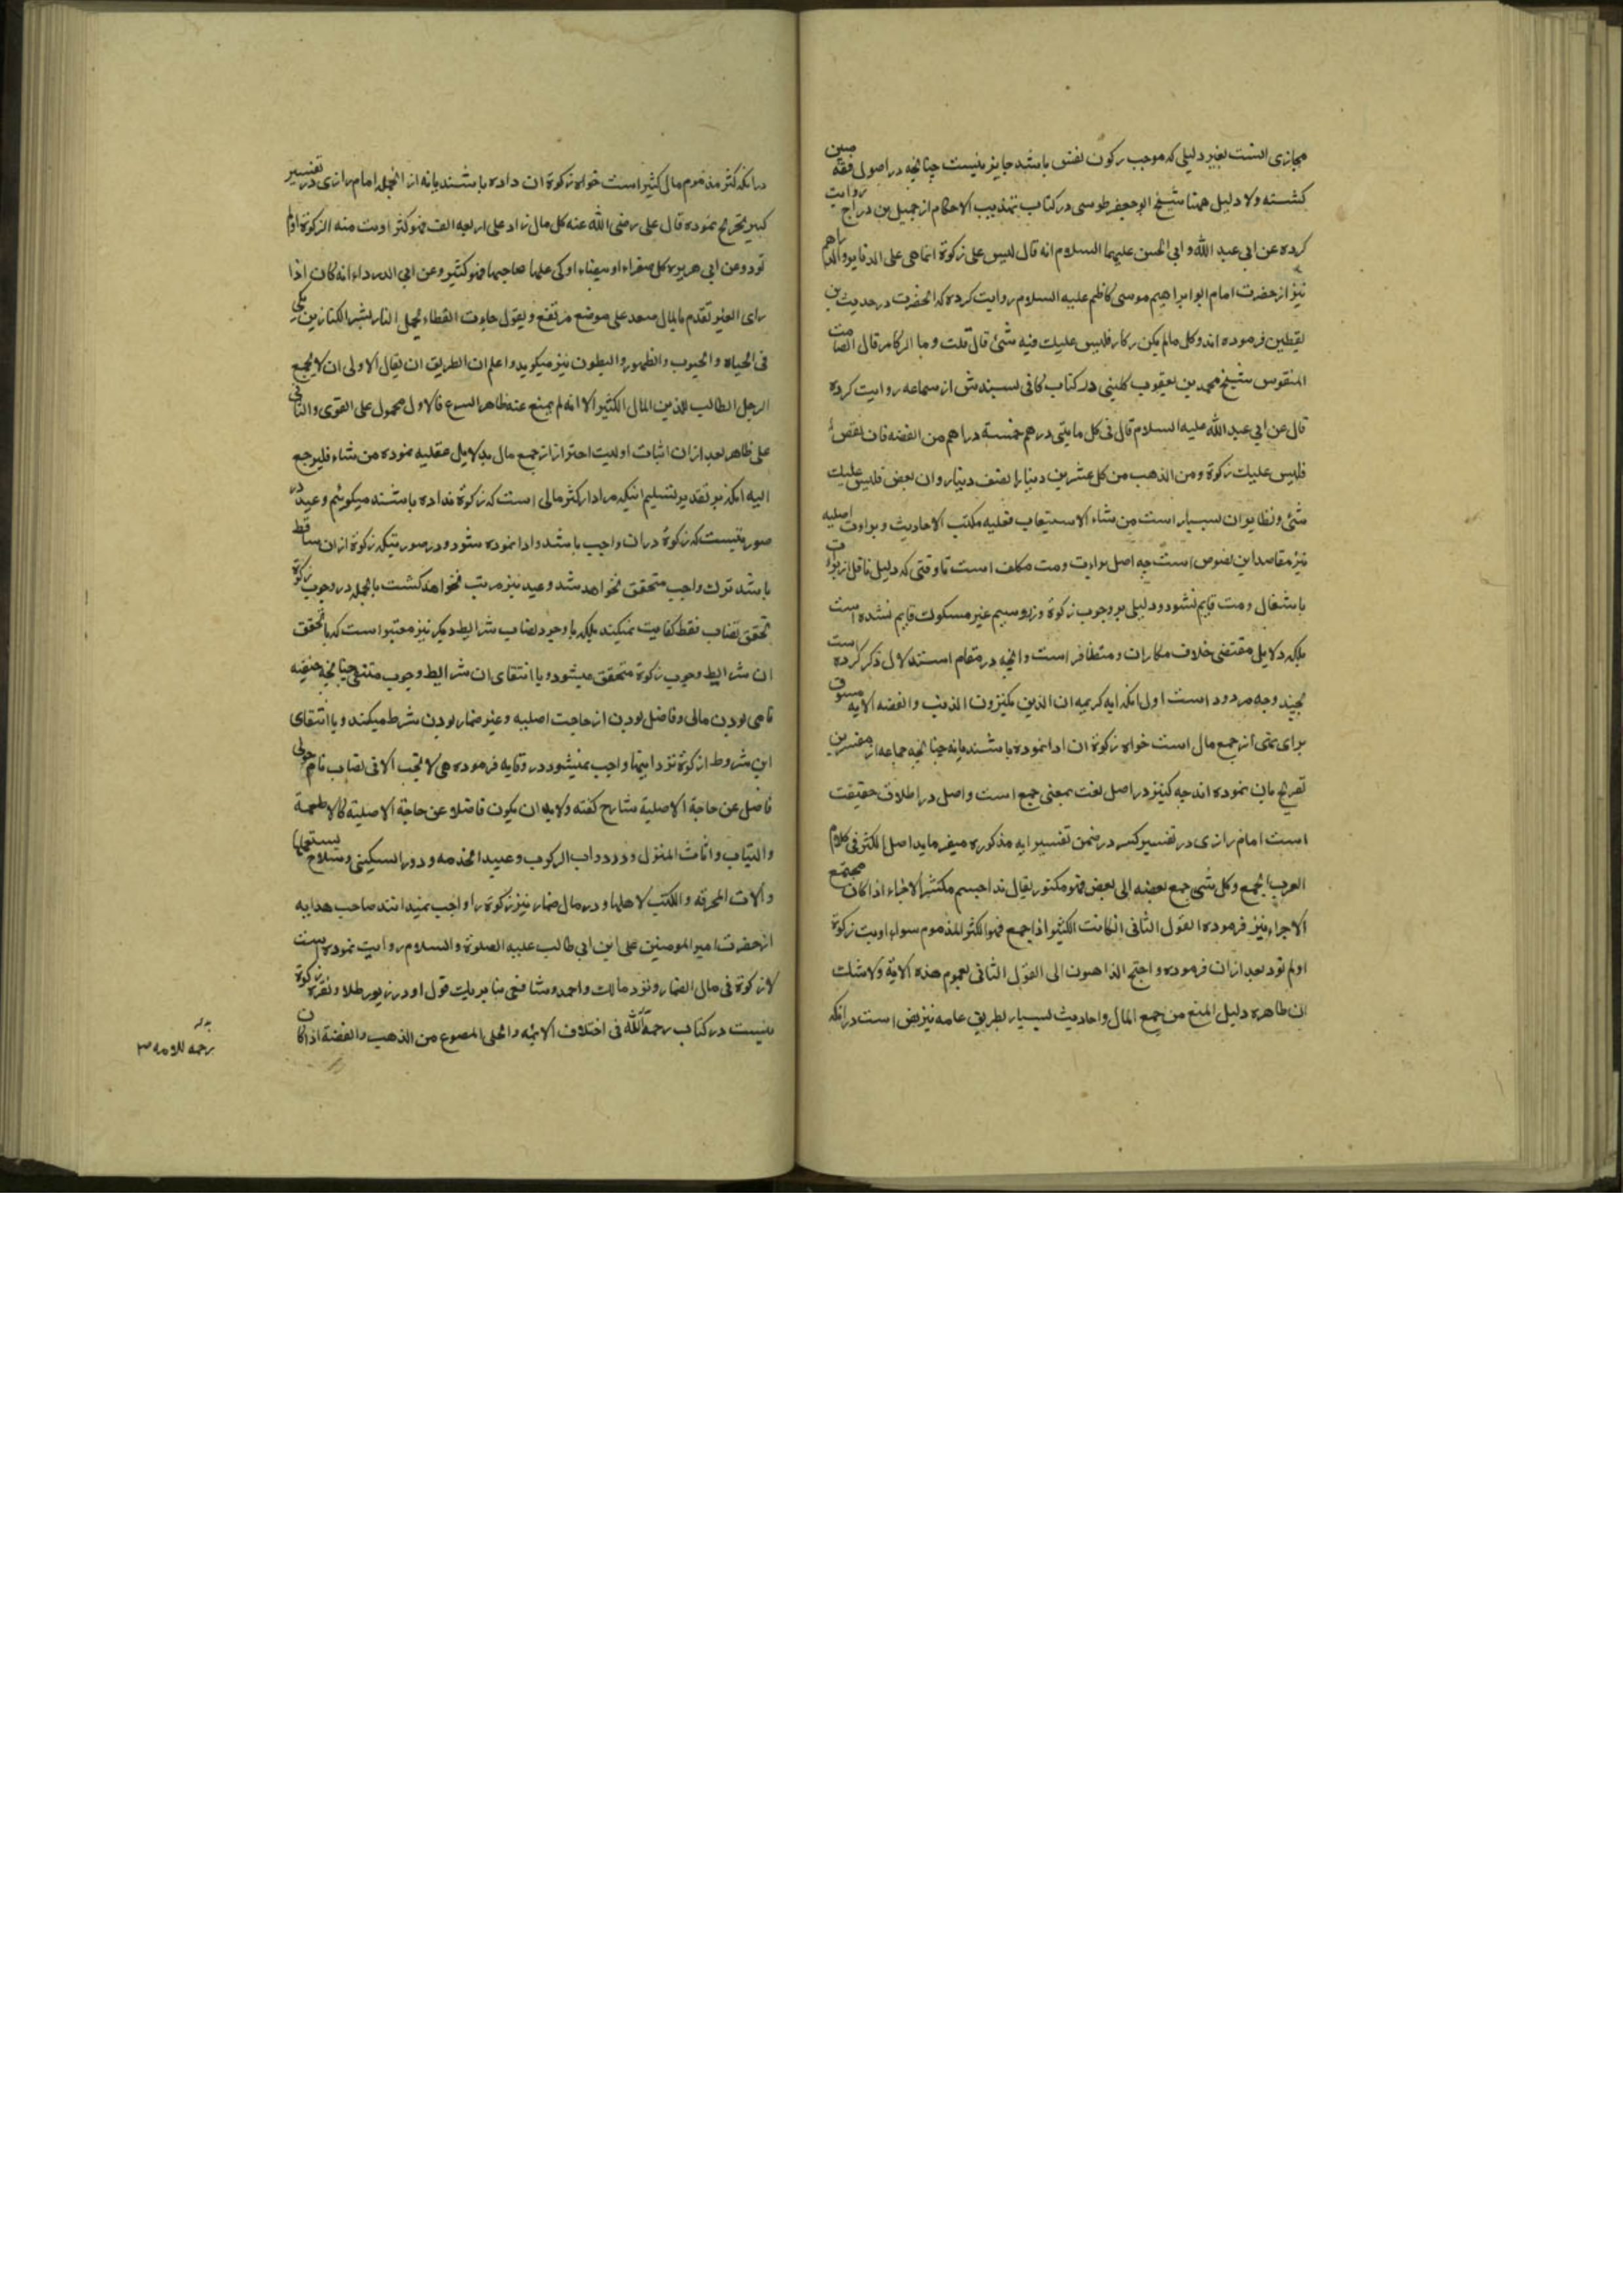 مجازی است بغیر دلیلی که موجب رکون نفس باشد جایز نیست چنانچه در اصول فقه مبین
کشته ولا دلیل همنا شیخ ابو جعفر طوسی در کتاب تهذیب الاحکام از جمیل بن دراج روایت
کرده عن ابی عبد الله و ابی الحسن علیهما السلام انه قال لیس علی زکوة انما هی علی الدنانیر والدراهم
نیز از حضرت امام ابو ابراهیم موسی کاظم علیه السلام روایت کرده که انحضرت در حدیث بن
یقطین فرموده اند وکل مالم یکن رکاز فلیس علیک فیه شئ قال قلت وما الرکاز قال الصامت
المنقوس شیخ محمد بن یعقوب کلینی در کتاب کافی بسندش از سماعه روایت کرده
قال عن ابی عبد الله علیه السلام قال فی کل مایتی درهم خمسة دراهم من الفضه فان نقص
فلیس علیک زکوة ومن الذهب من کل عشرین دینارا نصف دینار وان نقص فلیس علیک
شئ ونظایر ان بسیار است من شاء الاستیعاب فعلیه بکتب الاحادیث و براءت اصلیه
نیز مقاصد این نصوص است چه اصل براءت ذمت مکلف است تا وقتی که دلیل ناقل از براءت
باشغال ذمت قایم نشود و دلیلی بر وجوب زکوة زر وسیم غیر مسکوک قایم نشده است
بلکه دلایل مقتضی خلاف مکاران ومتظافر است وانچه در مقام استدلال ذکر کرده است
بچند وجه مردود است اول انکه ایه کریمه ان الذین یکنزون الذهب والفضه الایه مسوق
برای نهی از جمع مال است خواه زکوة ان ادا نموده باشند یا نه چنانچه جماعه از مفسرین
تصریح بان نموده اند چه کنز در اصل لغت بمعنی جمع است واصل در اطلاق حقیقت
است امام رازی در تفسیر کبیر در ضمن تفسیر ایه مذکوره میفرماید اصل الکنز فی کلام
العرب الجمع وکل شی جمع بعضه الی بعض فهو مکنوز یقال هذا جسم مکتنز الاجزاء اذا کان مجتمع
الاجزاء نیز فرموده القول الثانی ان المال الکثیر اذا جمع فهو الکنز المذموم سواء ادیت زکوة
اولم تود بعد ازان فرموده واحتج الذاهبون الی القول الثانی بعموم هذه الایة ولا شک
ان ظاهره دلیل المنع من جمع المال واحادیث بسیار بطریق عامه نیز نص است درانکه
درانکه کنز مذموم مال کثیر است خواه زکوة ان داده باشند یا نه از انجمله امام رازی در تفسیر
کبیر تخریج نموده قال علی رضی الله عنه کل مال زاد علی اربعه الف فهو کنز ادیت منه الزکوة اولم
تود وعن ابی هریره کل صفراء او بیضاء اوکی علیها صاحبها فهو کنز وعن ابی الدرداء انه کان اذا
رای العیر تقدم بالمال صعد علی موضع مرتفع ویقول جاءت القطار تحمل النار بشر الکنازین بکی
فی الجباه والجنوب والظهور والبطون نیز میکوید واعلم ان الطریق ان یقال الاولی ان لا یجمع
الرجل الطالب للدین المال الکثیر الا انه لم یمنع عنه ظاهر الشرع فالاول محمول علی التقوی والثانی
علی ظاهر بعد ازان اثبات اولویت احتراز از جمع مال بدلایل عقلیه نموده من شاء فلیرجع
الیه انکه بر تقدیر تسلیم اینکه مراد از کنز مالی است که زکوة نداده باشند میکوئیم وعید در
صورتیست که زکوة دران واجب باشد و ادا نموده نشود و در صورتیکه زکوة ازان ساقط
باشد ترک واجب متحقق نخواهد شد وعید نیز مرتب نخواهد کشت بالجمله در وجوب زکوة
تحقق نصاب فقط کفایت نمیکند بلکه با وجود نصاب شرایط دیکر نیز معتبر است که با تحقق
ان شرایط وجوب زکوة متحقق میشود و با انتفای ان شرایط وجوب منتفی چنانچه حنفیه
نامی بودن مالی وفاضل بودن از حاجت اصلیه وغیر ضمار بودن شرط میکنند و با انتفای
این شروط از زکوة نزد اینها واجب نمیشود در وقایه فرموده هی لا تجب الا فی نصاب تام حولی
فاضل عن حاجة الاصلیة شارح کفته ولابد ان یکون فاضلا عن حاجة الاصلیة کالاطعمة
والثیاب واثاث المنزل ودواب الرکوب وعبید الخدمه ودور السکنی وسلاح یستعملها
والات المحرفه والکتب لاهلها ودر مال ضمار نیز زکوة را واجب نمیدانند صاحب هدایه
از حضرت امیر المومنین علی ابن ابی طالب علیه الصلوة والسلام روایت نموده
لا زکوة فی مال الضمار ونزد مالک واحمد وشافعی بنا بر یک قول او در زیور طلا ونقره زکوة
نیست در کتاب رحمة الله فی اختلاف الایمه والحلی المصوغ من الذهب والفضة اذا کان